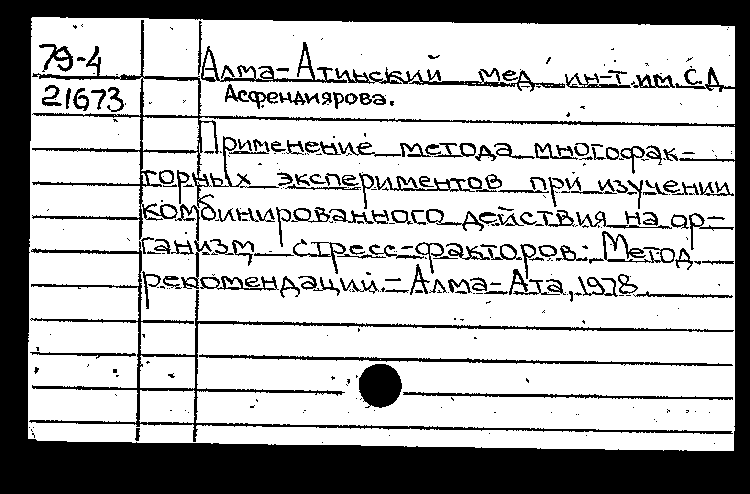 79-4 Алма-Атинский мед ин-т. им. С.Д.
21673 Асфендиярова.
Применение метода многофак-
торных экспериментов при изучении
комбинированного действия на ор-
ганизм стресс-факторов: Метод
рекомендации.-Алма-Ата, 1978.